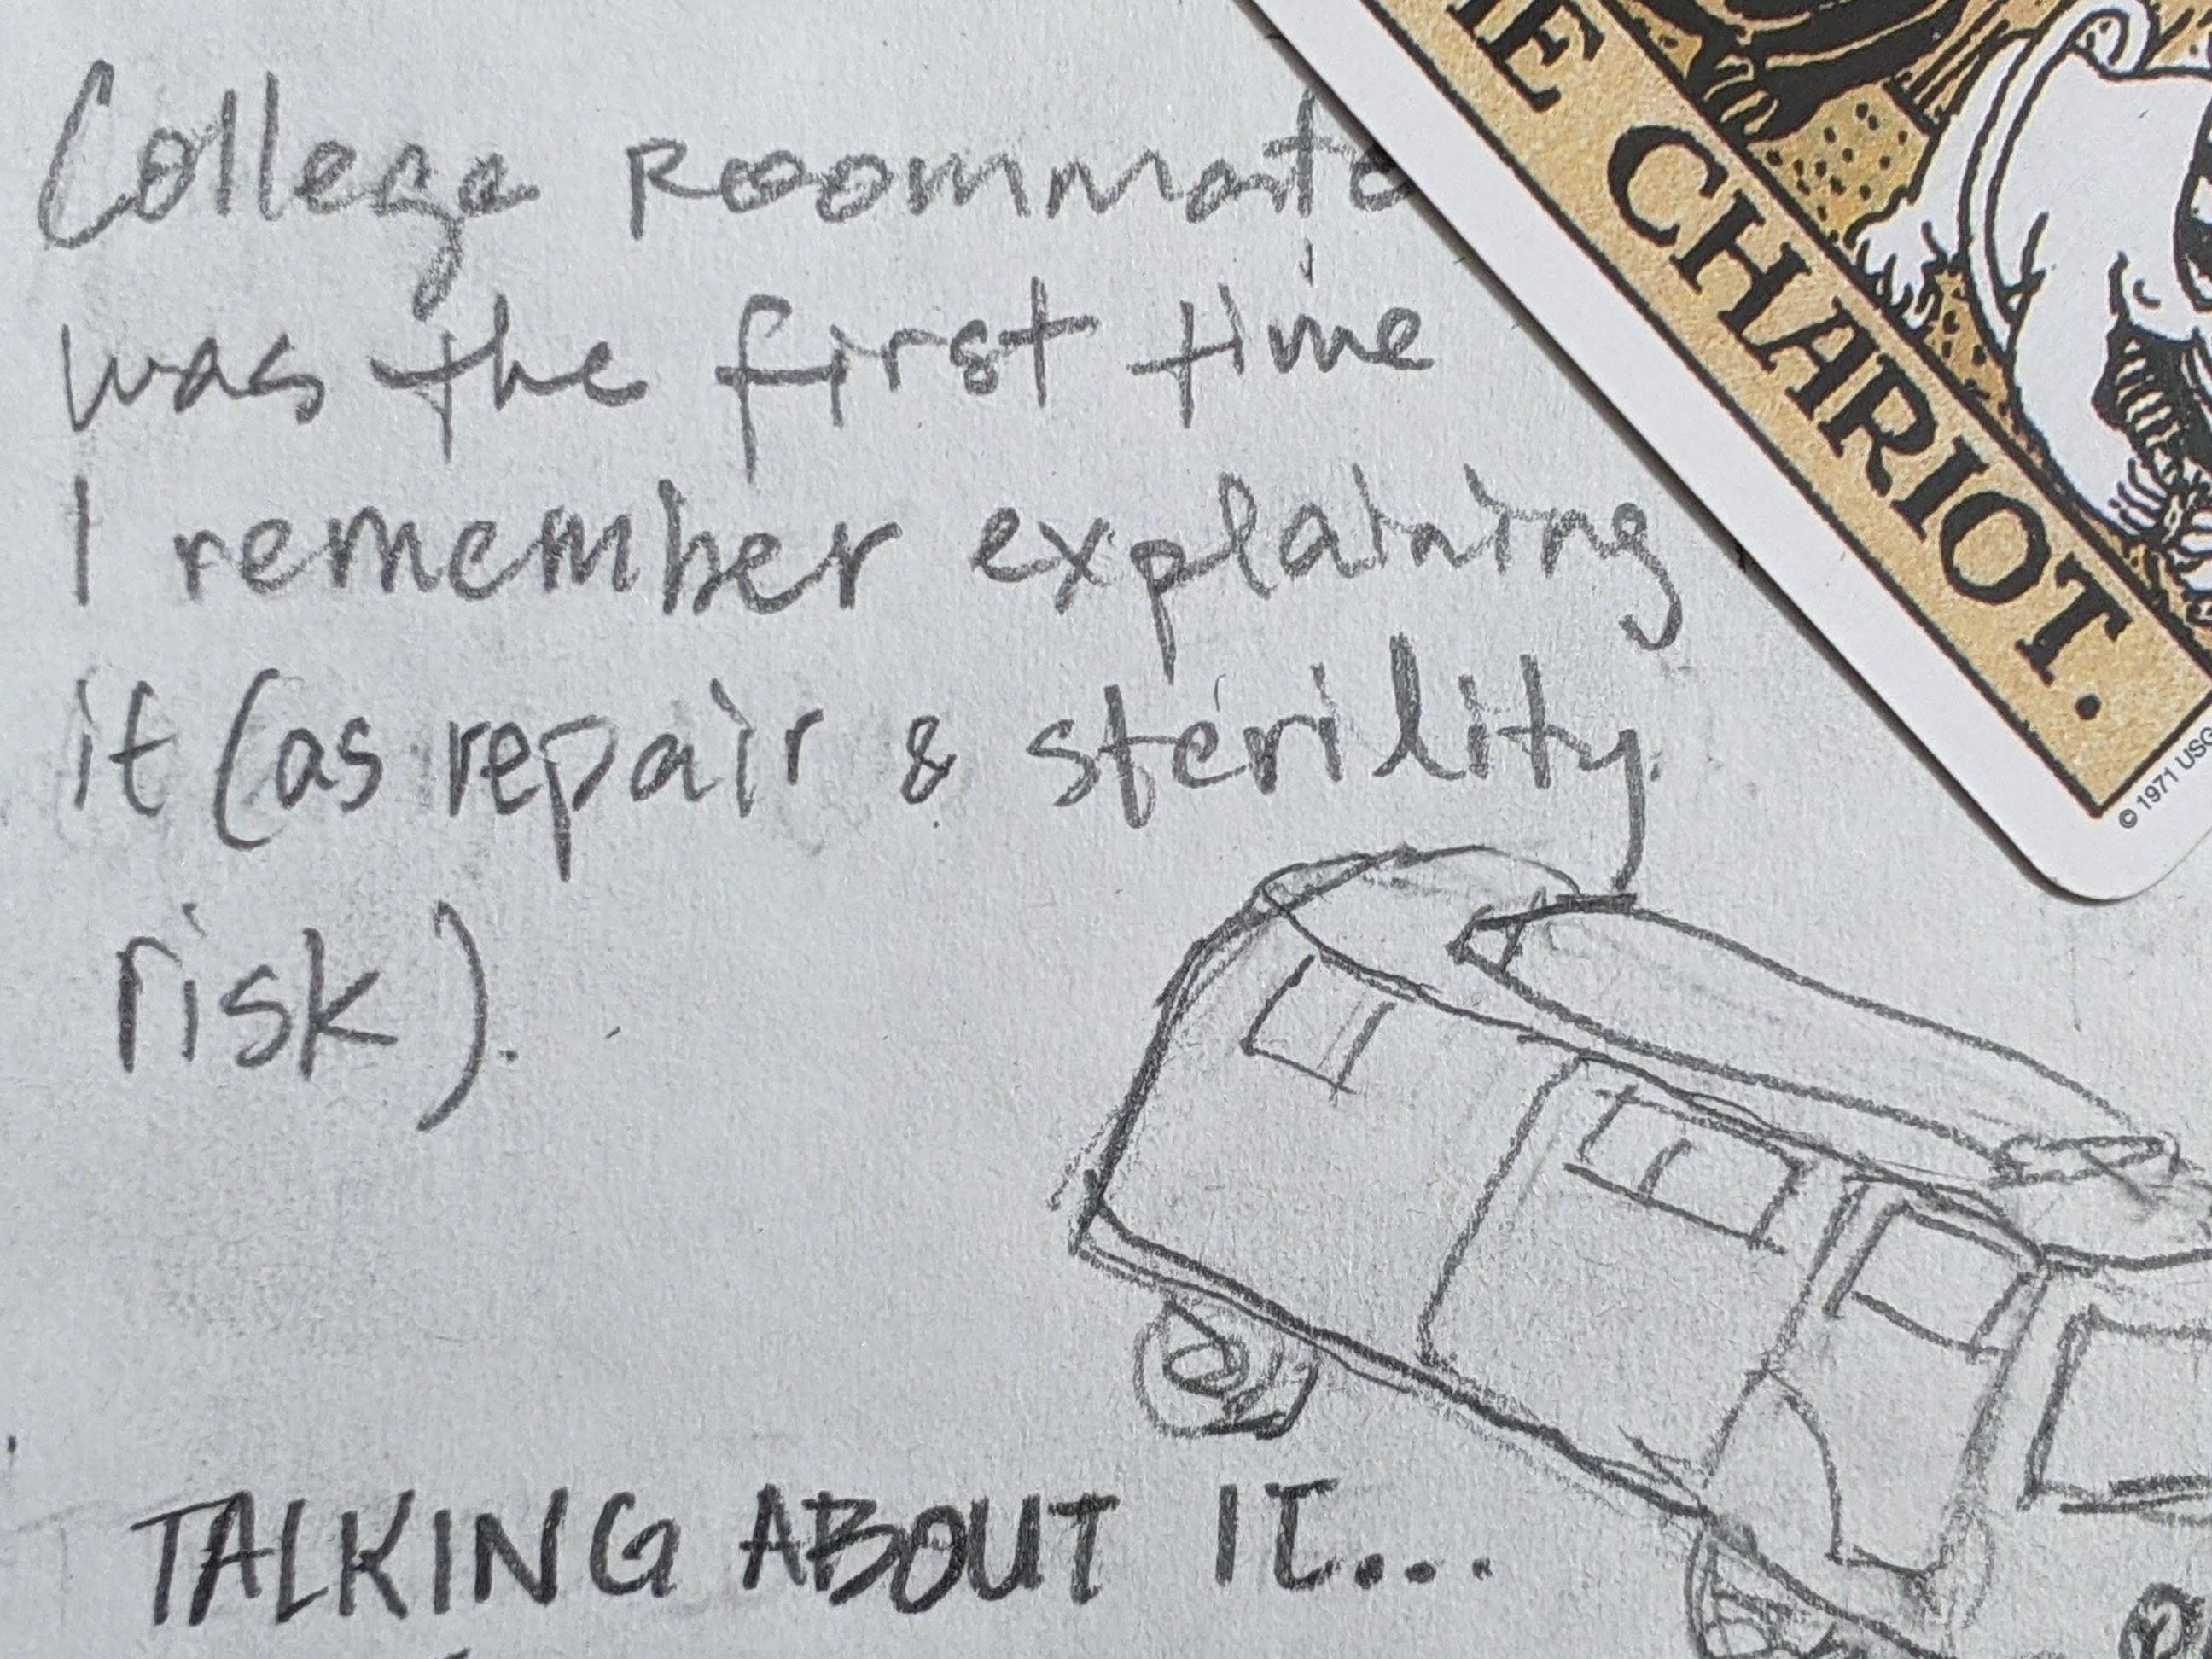 College Roommate
was the first time
I remember explaining
it (as repair & sterility
risk).
TALKING ABOUT IT...
THE CHARIOT.
© 1971 USG